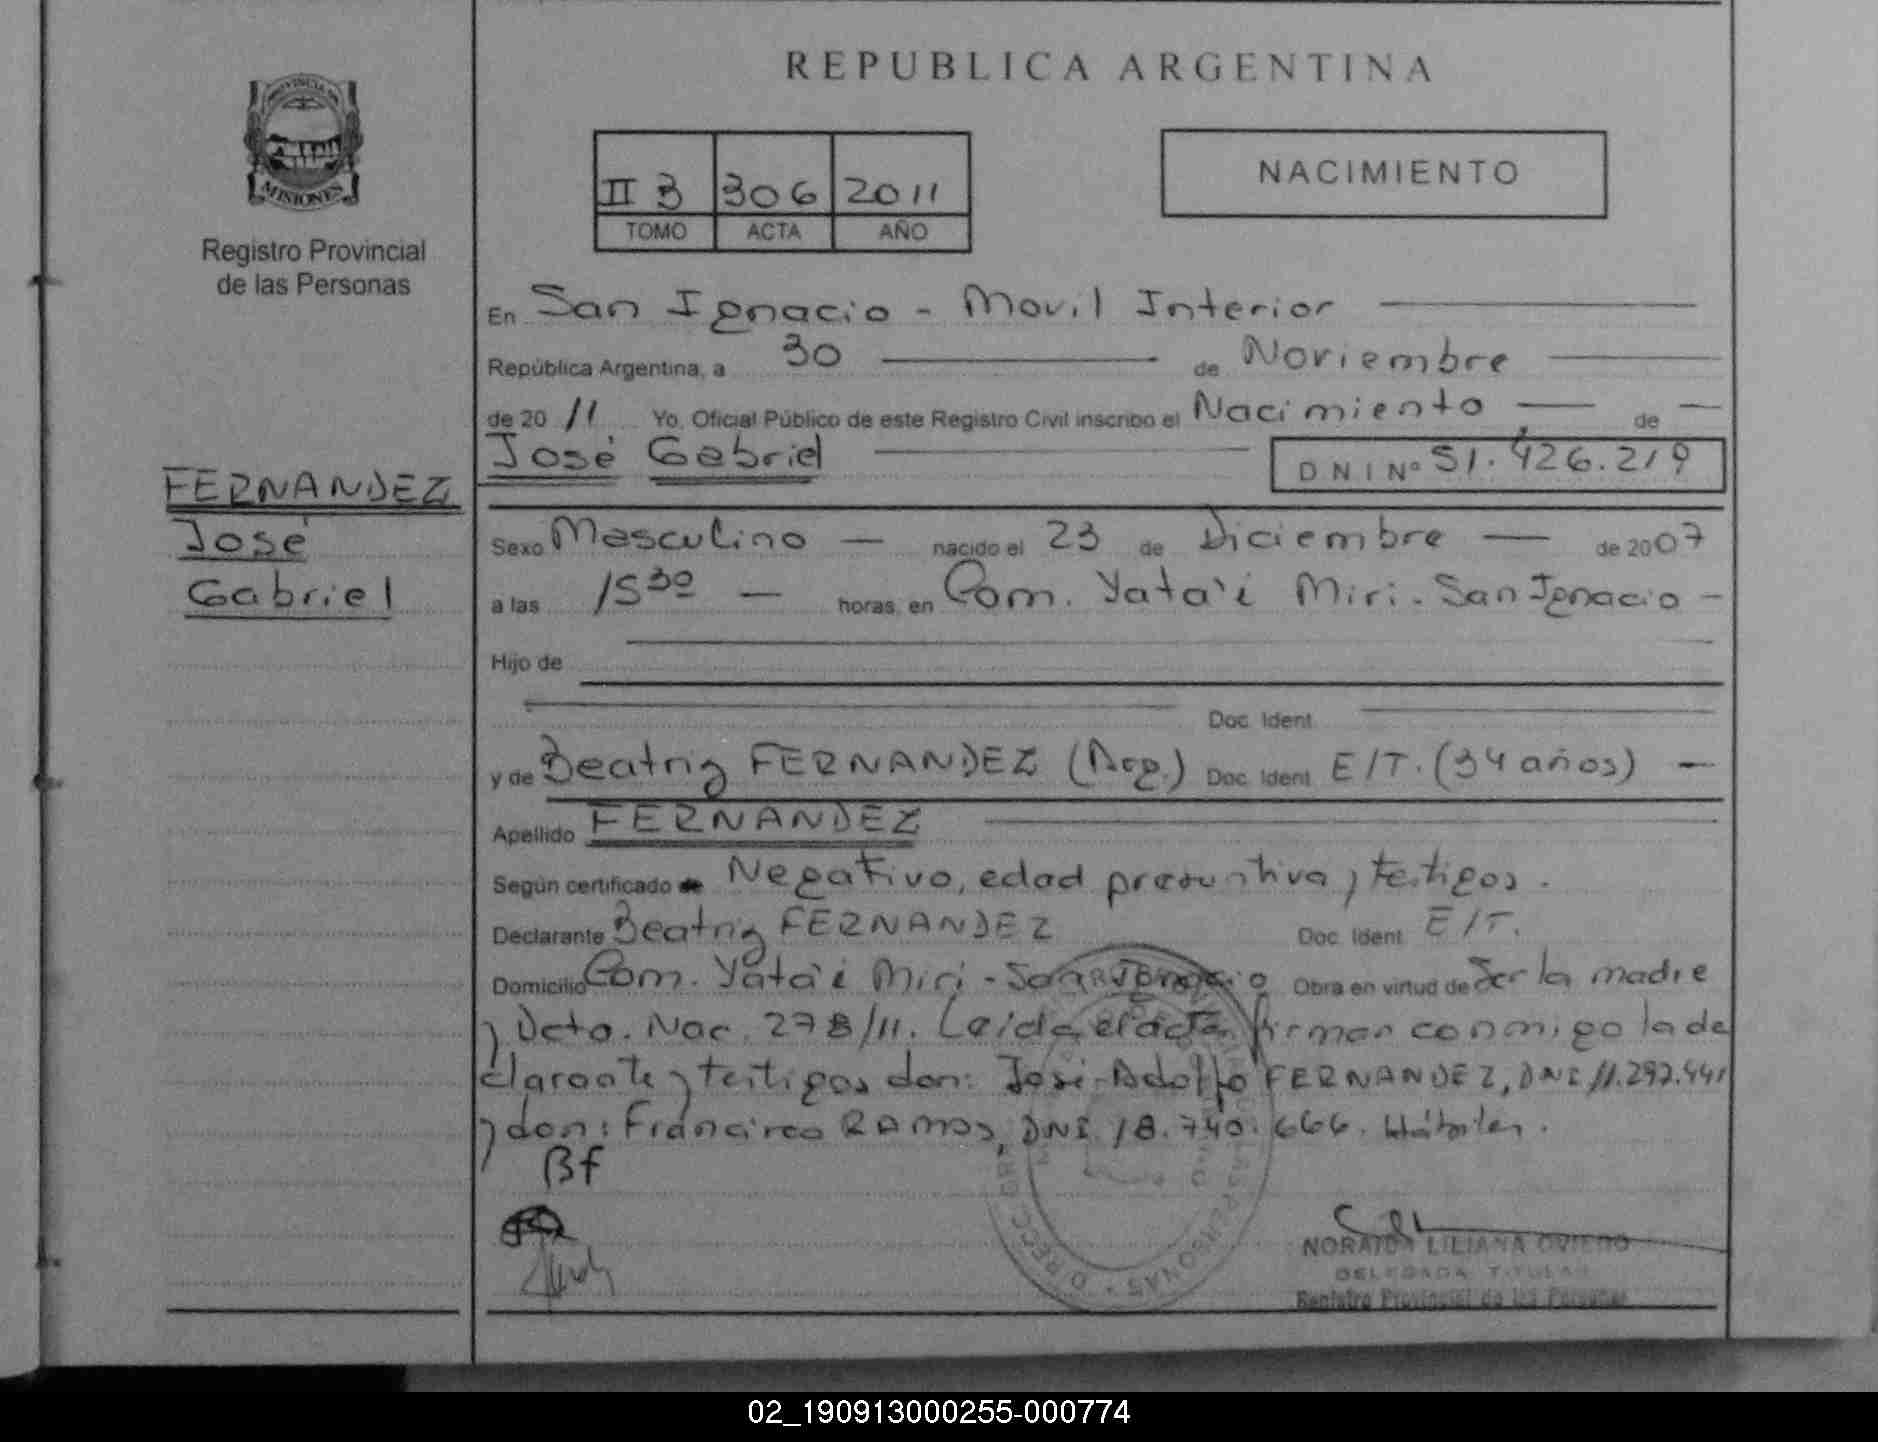 REPUBLICA ARGENTINA
PROVINCIA DE
MISIONES
Registro Provincial
de las Personas
II B 306 2011
TOMO ACTA AÑO
NACIMIENTO
En San Ignacio - Movil Interior
República Argentina, a 30 de Noviembre
de 2011 Yo, Oficial Público de este Registro Civil inscribo el Nacimiento de
José Gabriel DNI Nº 51.426.219
FERNANDEZ
José
Gabriel
Sexo Masculino nacido el 23 de Diciembre de 2007
a las 15 30 horas, en Com. Yata'i Miri - San Ignacio -
Hijo de
Doc. Ident.
y de Beatriz FERNANDEZ (Arg.) Doc. Ident. E/T. (34 años) -
Apellido FERNANDEZ
Según certificado de Negativo, edad presuntiva y testigos.
Declarante Beatriz FERNANDEZ Doc. Ident. E/T.
Domicilio Com. Yata'i Miri - San Ignacio Obra en virtud de Ser la madre
y Dcto. Nac. 278/11. Leida el acta firman conmigo la de
clarante y testigos don: José Adolfo FERNANDEZ, DNI 11.297.441
y don: Francisco RAMOS, DNI 18.740.666. Hábiles.
BF
NORAIDA LILIANA OVIEDO
DELEGADA TITULAR
Registro Provincial de las Personas
02_190913000255-000774